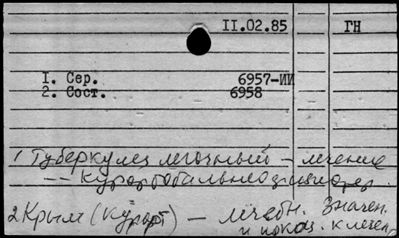 11.02.85 ГН
1. Сер. 6957-ИИ
2. Сост. 6958
1 Туберкулез легочный - лечение
-- курорт
2 Крым (курорт) - лечебн. значен.
и показ. к лечен.